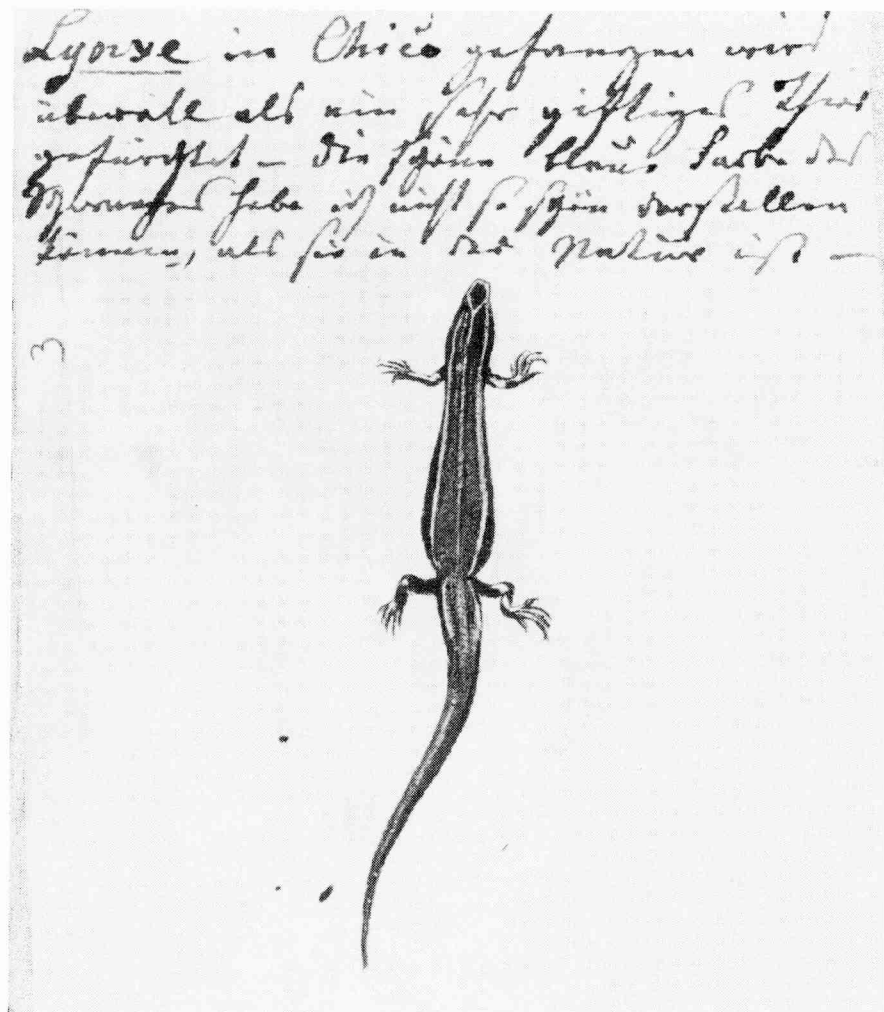 Lyonxe in Chico gefangen wird
überall als ein sehr giftiges Thier
gefürchtet – die schöne blaue Farbe des
Schwanzes habe ich nicht so schön darstellen
können, als sie in der Natur ist –